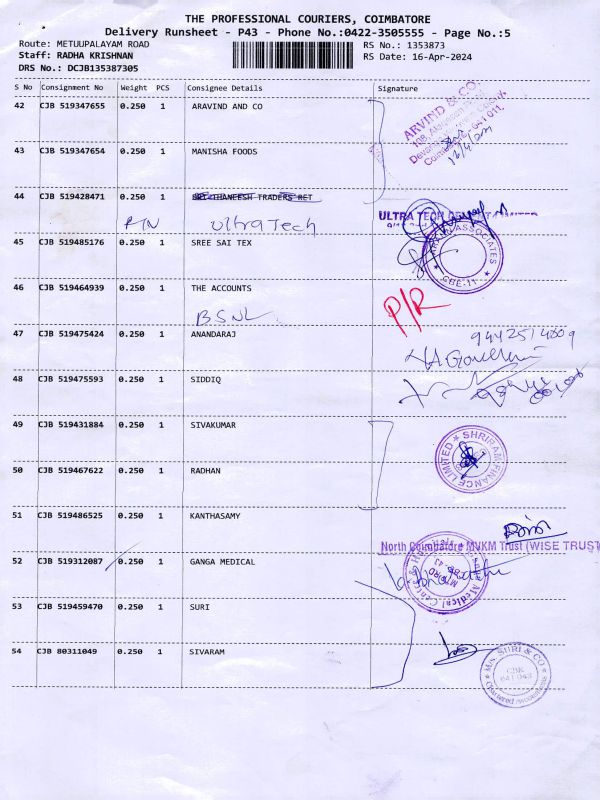 THE PROFESSIONAL COURIERS, COIMBATORE
Delivery Runsheet - P43 - Phone No.:0422-3505555 - Page No.:5
Route: METUUPALAYAM ROAD RS No.: 1353873
Staff: RADHA KRISHNAN RS Date: 16-Apr-2024
DRS No.: DCJB135387305
S No Consignment No Weight PCS Consignee Details Signature
42 CJB 519347655 0.250 1 ARAVIND AND CO
ARVIND & CO.
43 CJB 519347654 0.250 1 MANISHA FOODS
44 CJB 519428471 0.250 1 THANEESH TRADERS RET
RTN Ultra Tech
ULTRA TECH
45 CJB 519485176 0.250 1 SREE SAI TEX
ASSOCIATES
CBE-11
46 CJB 519464939 0.250 1 THE ACCOUNTS
P/R
B.S.N.L
47 CJB 519475424 0.250 1 ANANDARAJ
48 CJB 519475593 0.250 1 SIDDIQ
49 CJB 519431884 0.250 1 SIVAKUMAR
SHRIRAM FINANCE LIMITED
50 CJB 519467622 0.250 1 RADHAN
51 CJB 519486525 0.250 1 KANTHASAMY
North Coimbatore MVKM Trust (WISE TRUST
52 CJB 519312087 0.250 1 GANGA MEDICAL
Medical Centre
53 CJB 519459470 0.250 1 SURI
54 CJB 80311049 0.250 1 SIVARAM
SURI & CO
CBE
641 043
Chartered Accountants